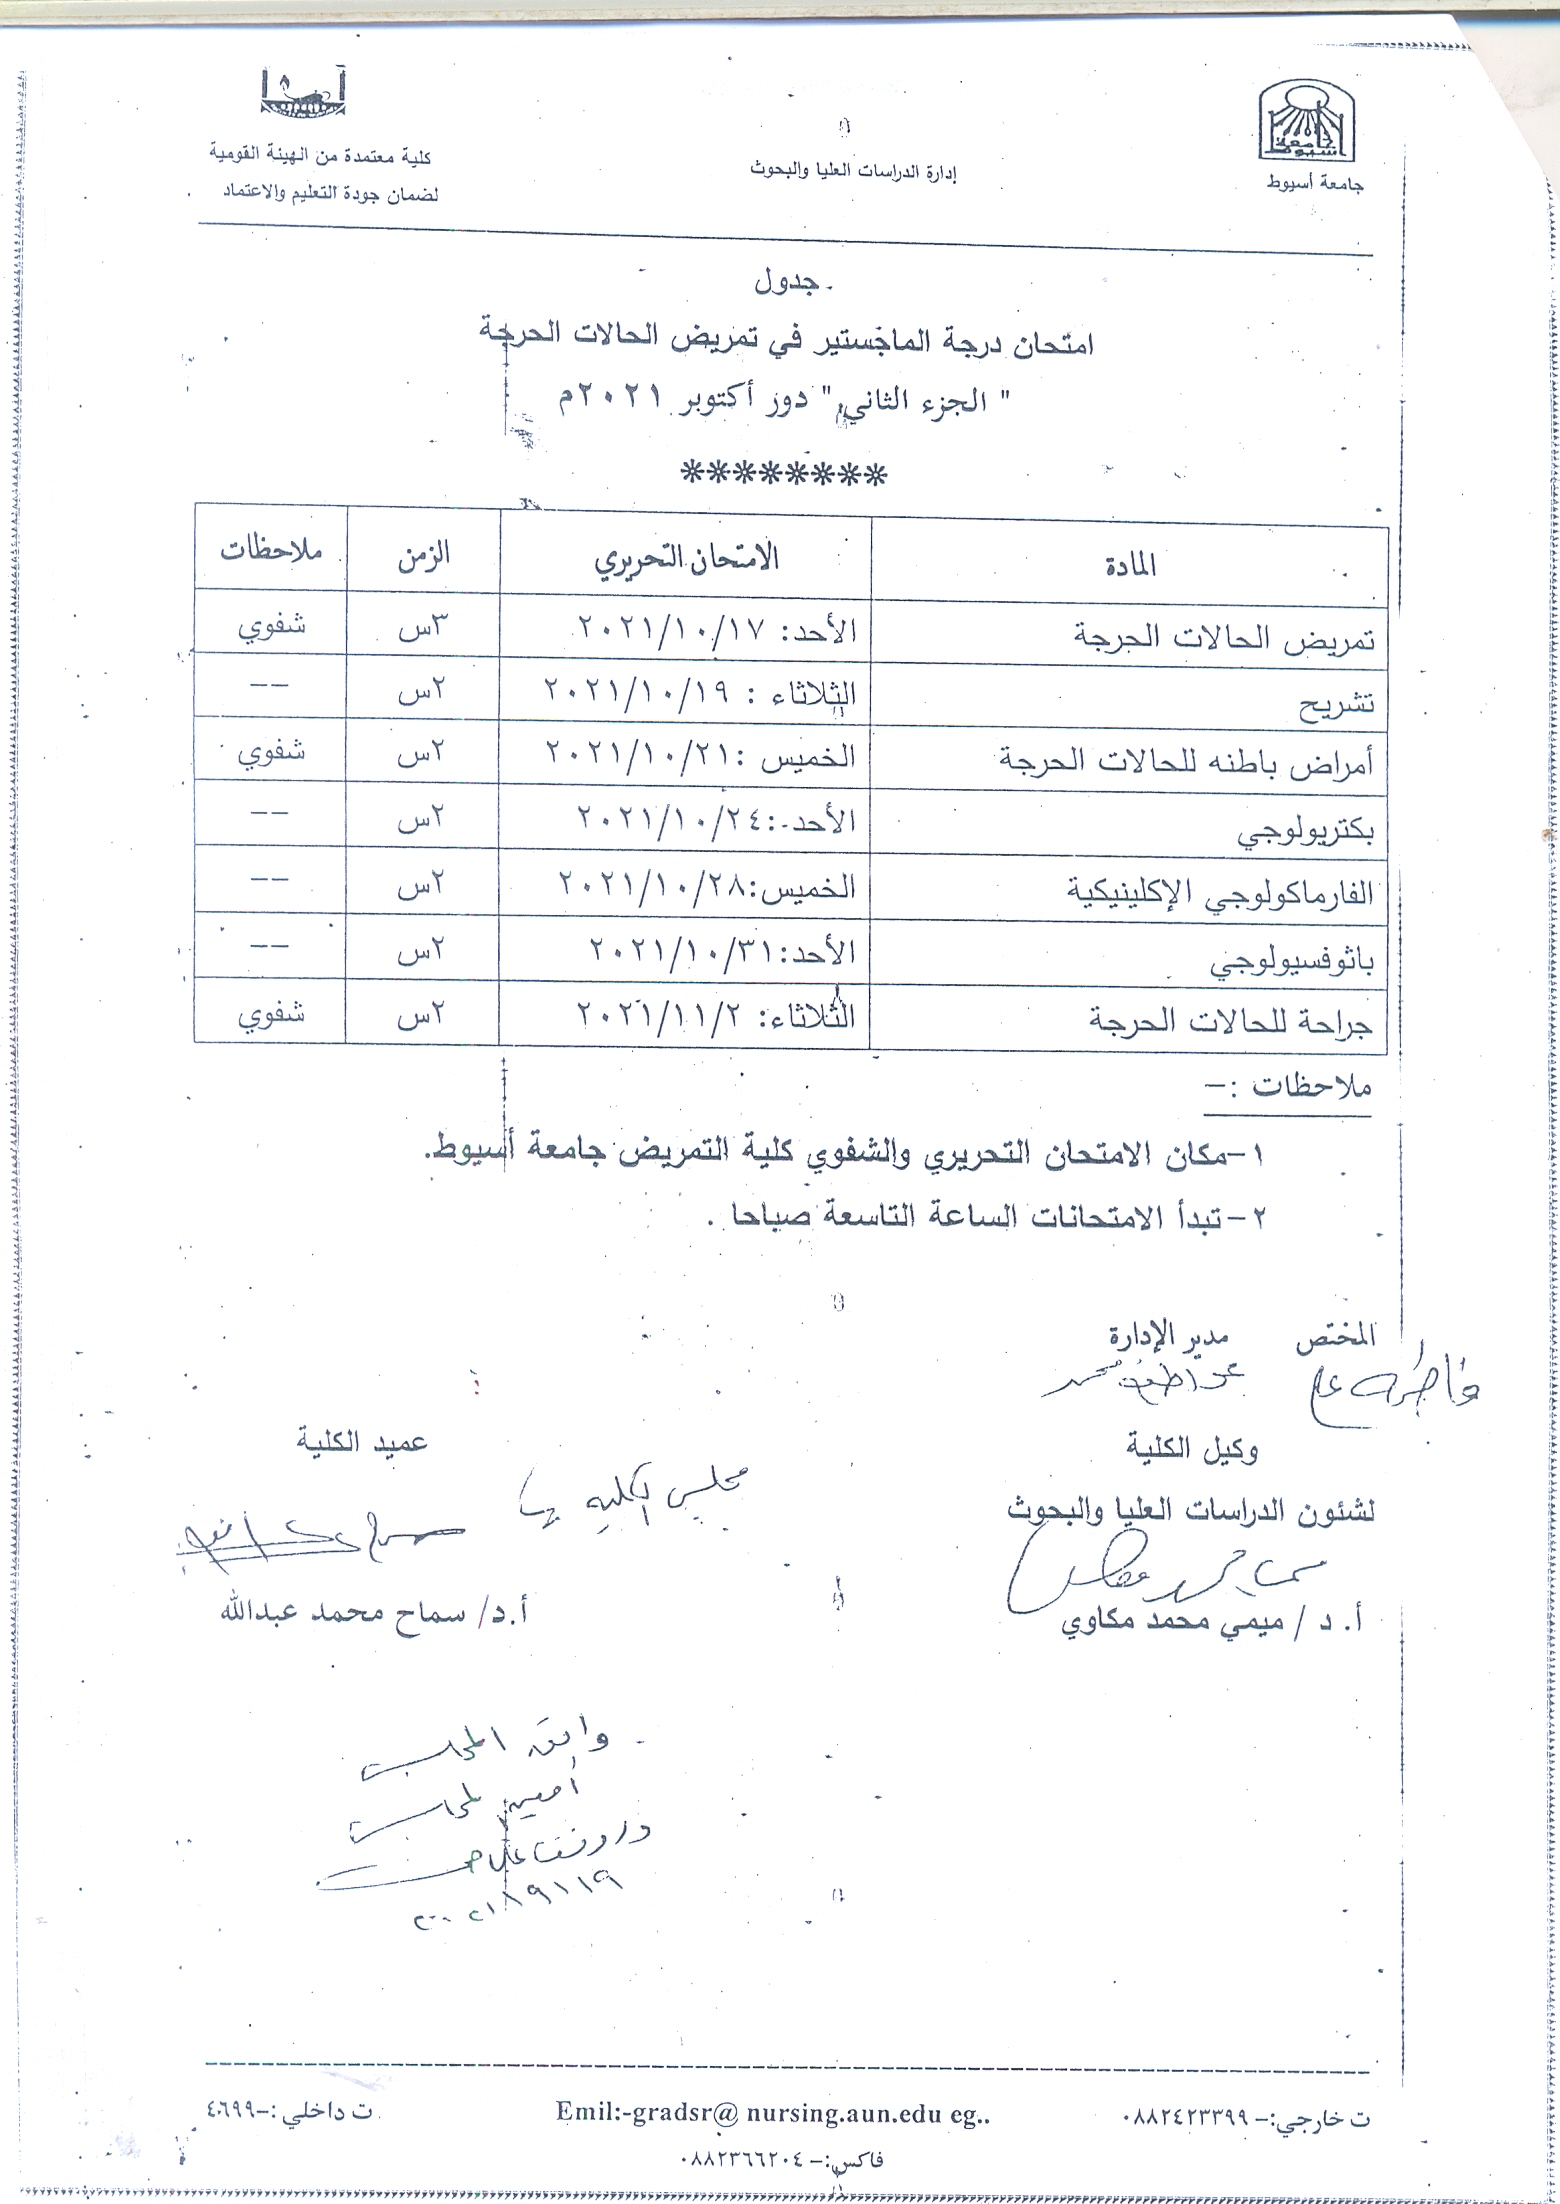 جامعة أسيوط
إدارة الدراسات العليا والبحوث
كلية معتمدة من الهيئة القومية
لضمان جودة التعليم والاعتماد
جدول
امتحان درجة الماجستير في تمريض الحالات الحرجة
" الجزء الثاني" دور أكتوبر ٢٠٢١م
********
المادة الامتحان التحريري الزمن ملاحظات
تمريض الحالات الحرجة الأحد: ٢٠٢١/١٠/١٧ ٣س شفوي
تشريح الثلاثاء : ٢٠٢١/١٠/١٩ ٢س --
أمراض باطنه للحالات الحرجة الخميس :٢٠٢١/١٠/٢١ ٢س شفوي
بكتريولوجي الأحد:٢٠٢١/١٠/٢٤ ٢س --
الفارماكولوجي الإكلينيكية الخميس:٢٠٢١/١٠/٢٨ ٢س --
باثوفسيولوجي الأحد:٢٠٢١/١٠/٣١ ٢س --
جراحة للحالات الحرجة الثلاثاء: ٢٠٢١/١١/٢ ٢س شفوي
ملاحظات :-
١-مكان الامتحان التحريري والشفوي كلية التمريض جامعة أسيوط.
٢-تبدأ الامتحانات الساعة التاسعة صباحا .
المختص مدير الإدارة
فاطمة علي عواطف محمد
وكيل الكلية عميد الكلية
مجلس الكلية
لشئون الدراسات العليا والبحوث
أ. د / ميمي محمد مكاوي أ.د/ سماح محمد عبدالله
وافق المجلس
أمين المجلس
ت خارجي:- ٠٨٨٢٤٢٣٣٩٩ Emil:-gradsr@ nursing.aun.edu eg.. ت داخلي:-٤٦٩٩
فاكس:-٠٨٨٢٣٦٦٢٠٤